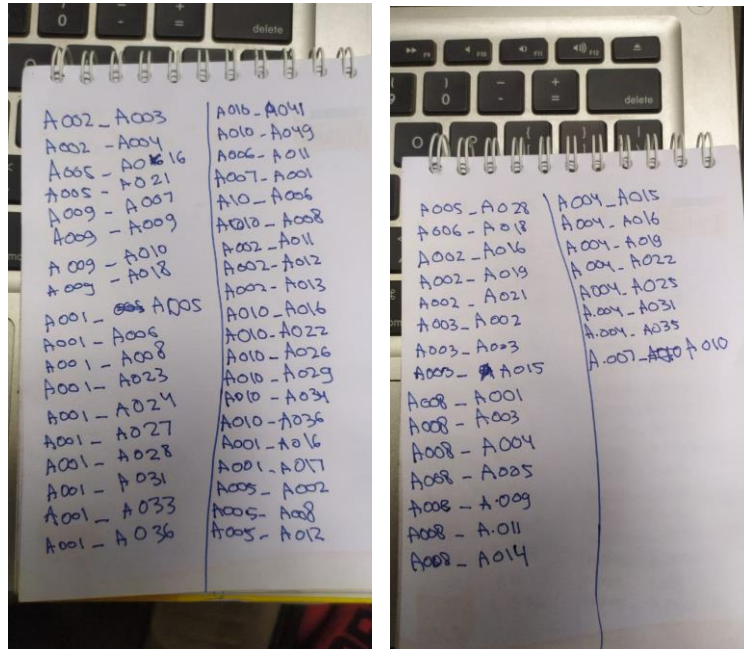 delete
A002_A003
A002 - A004
A005 - A016
A005 - A021
A009 - A007
A009 - A009
A009 - A010
A009 - A018
A001 - A005
A001 - A006
A001 - A008
A001 - A023
A001 - A024
A001 - A027
A001 - A028
A001 - A031
A001 - A033
A001 - A036
A010 - A041
A010 - A049
A006 - A011
A007 - A001
A10 - A006
A010 - A008
A002 - A011
A002 - A012
A002 - A013
A010 - A016
A010 - A022
A010 - A026
A010 - A029
A010 - A034
A010 - A036
A001 - A016
A001 - A017
A005 - A002
A005 - A008
A005 - A012
F9 F10 F11 F12
) 0
- 
+ =
delete
O
A005 - A028
A006 - A018
A002 - A016
A002 - A019
A002 - A021
A003 - A002
A003 - A003
A003 - A015
A008 - A001
A008 - A003
A008 - A004
A008 - A005
A008 - A.009
A008 - A.011
A008 - A014
A004_A015
A004 - A016
A004 - A019
A004 - A022
A004 - A025
A.004 - A031
A.004 - A035
A.007 - A010